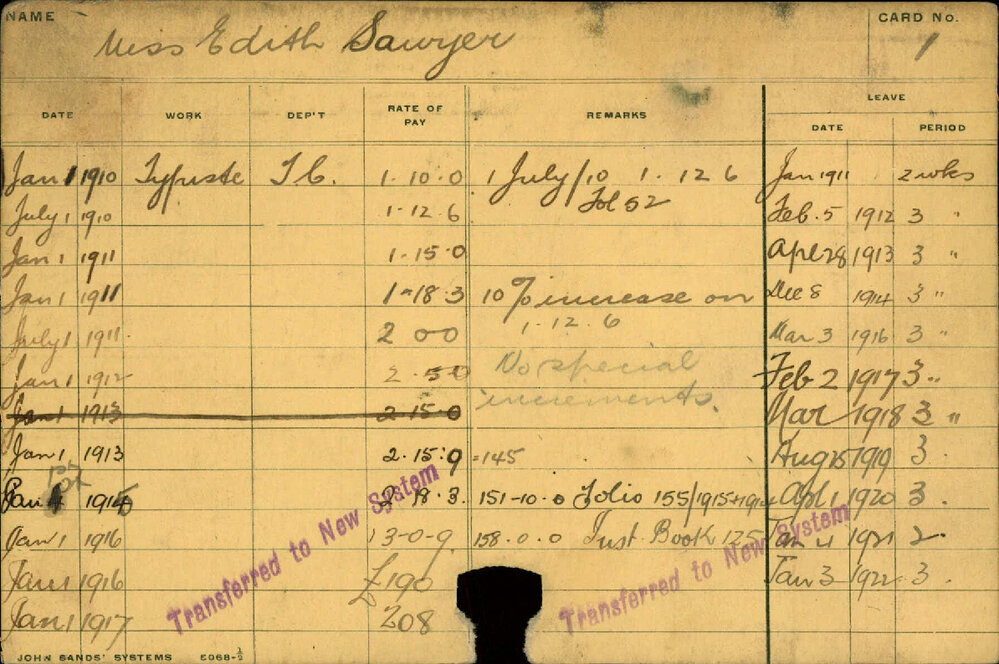 NAME Miss Edith Sawyer CARD No. 1
DATE WORK DEP'T RATE OF PAY REMARKS LEAVE
DATE PERIOD
Jan 1 1910 Typiste T.C. 1.10.0 1 July/10 1.12 6 Jan 1911 2 wks
July 1 1910 1.12.6 Fol 52 Feb. 5 1912 3 "
Jan 1 1911 1.15.0 Apl 28 1913 3 "
Jan 1 1911 1-18.3 10% increase on Dec 8 1914 3 "
July 1 1911 2 00 1.12.6 Mar 3 1916 3 "
Jan 1 1912 2.5.0 No special Feb 2 1917 3 "
Jan 1 1913 2 15.0 increments. Mar 1918 3 "
Jan 1 1913 2.15.9 =145 Aug 25 1919 3.
Jan 1 1915 2 18.3. 151-10.0 Folio 155/1915+1914 Apl 1 1920 3.
Jan 1 1916 3-0-9. 158.0.0 Inst. Book 125 Jan 4 1921 2.
Jan 1 1916 £190 Jan 3 1922 3.
Jan 1 1917 208
Transferred to New System
Transferred to New System
JOHN SANDS' SYSTEMS E068-½